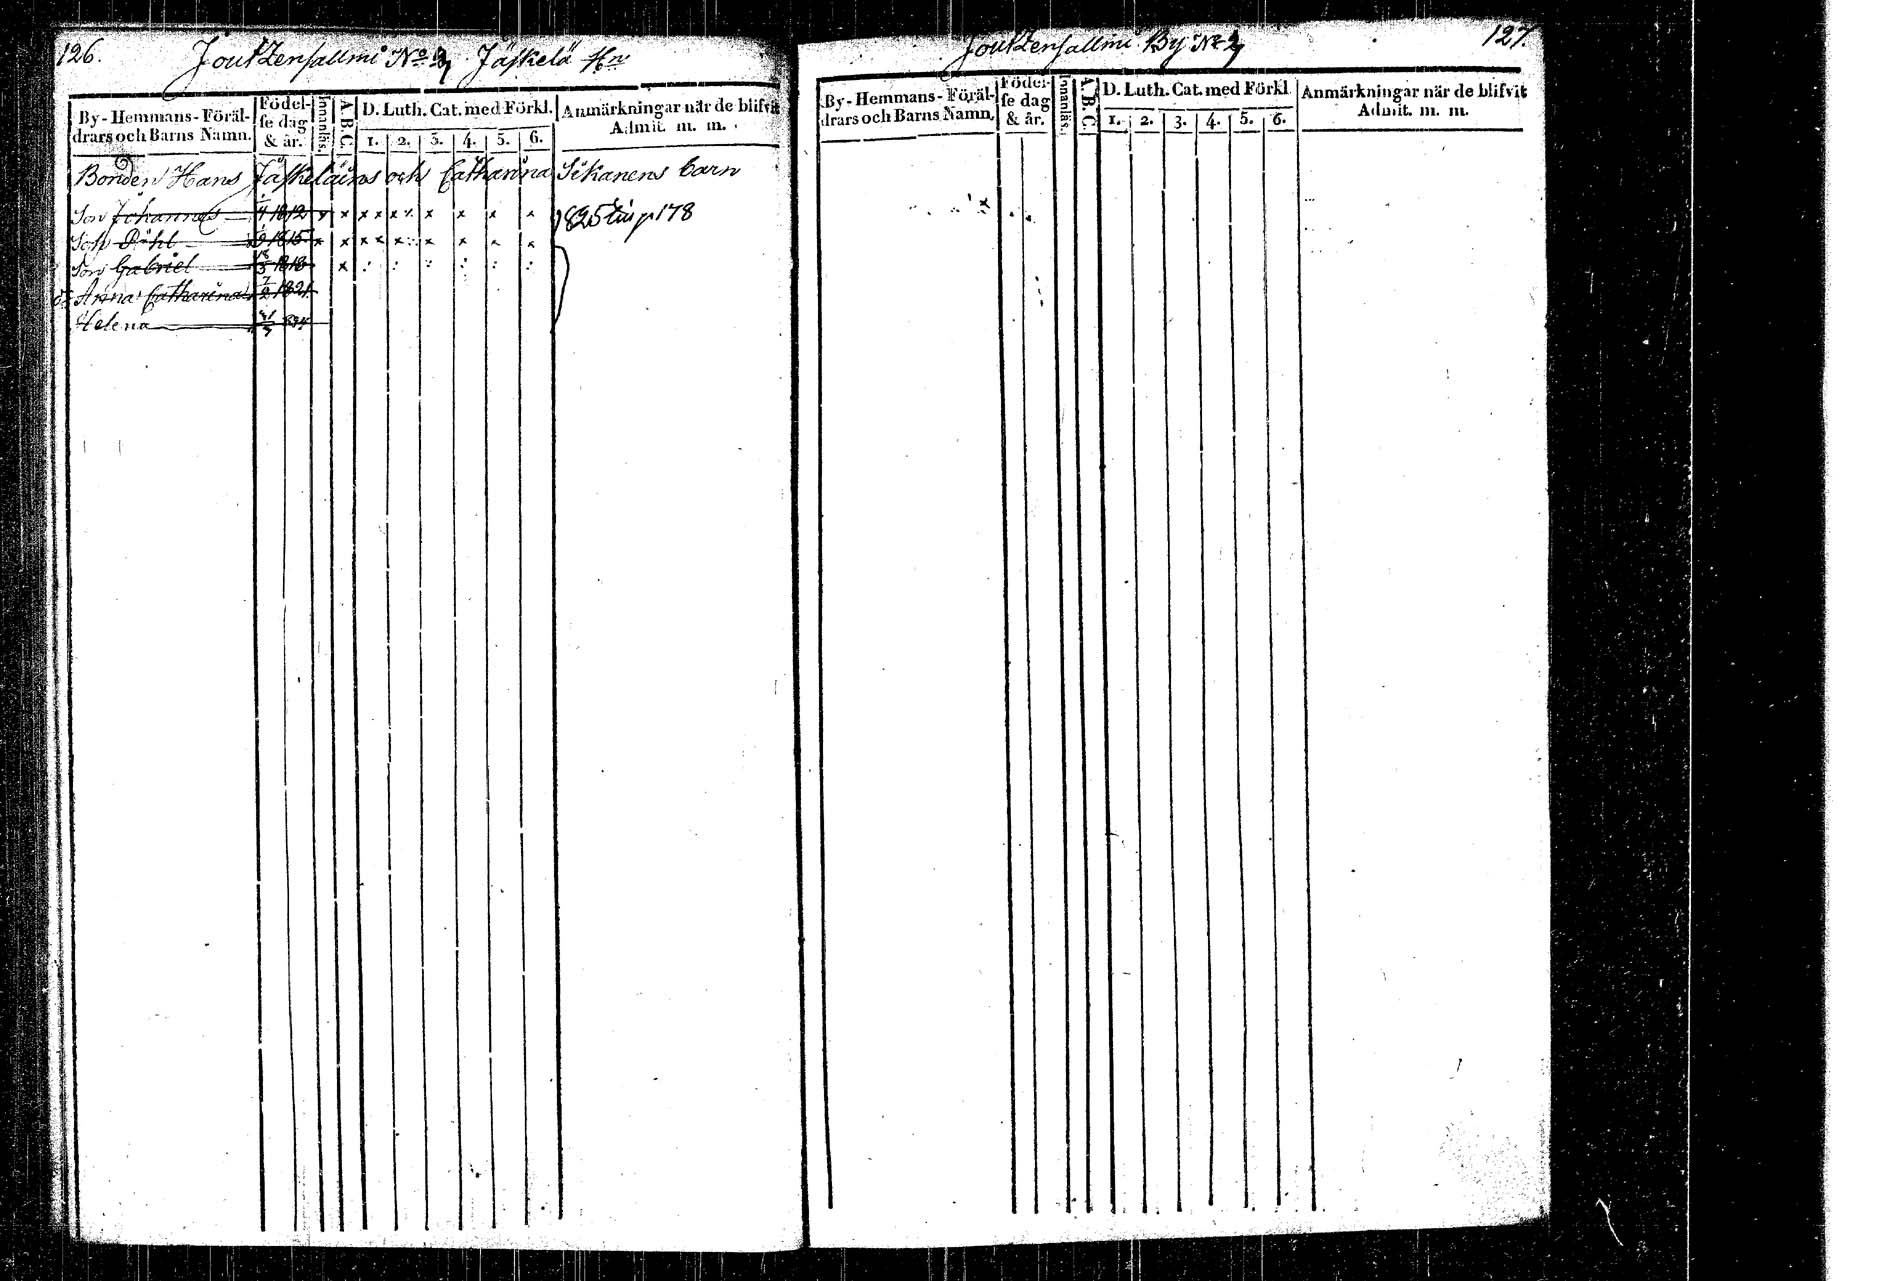 126. Joutzensallmi No 2, Jäskelä Hn
By - Hemmans - Föräl- drars och Barns Namn.
Födel- se dag & år.
Innanläs.
A.B.C.
D. Luth. Cat. med Förkl.
1. 2. 3. 4. 5. 6.
Anmärkningar när de blifvit Admit. m. m.
Bonden Hans Jäskeläins och Catharina Sikanens barn
Son Johannes 1812 x x x x x x x x x 1825 p 178
Son Påhl 1815 x x x x x x x x x
Son Gabriel 18/3 1818 x
Anna Catharina 7/2 1821
Helena 31/3 824
Joutzensallmi By No 2 127.
By - Hemmans - Föräl- drars och Barns Namn.
Födel- se dag & år.
Innanläs.
A.B.C.
D. Luth. Cat. med Förkl
1. 2. 3. 4. 5. 6.
Anmärkningar när de blifvit Admit. m. m.